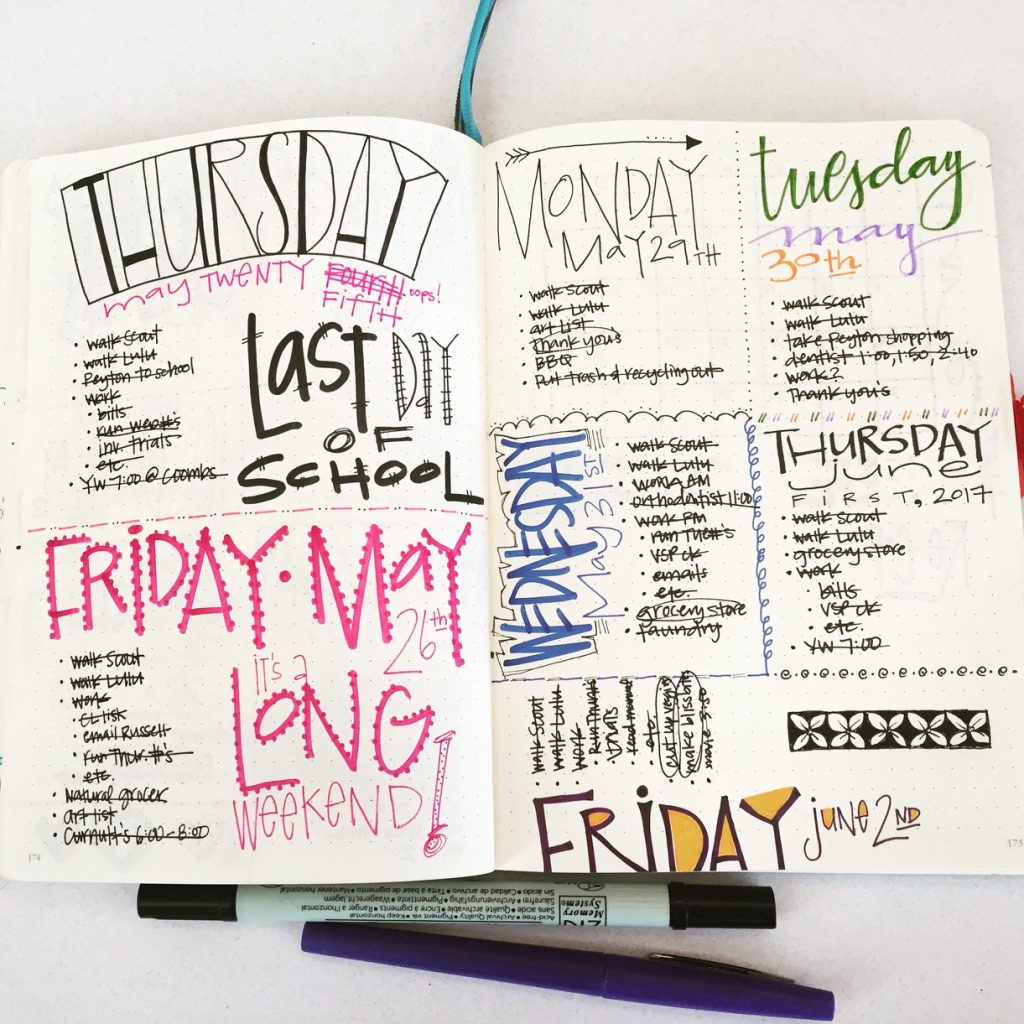 THURSDAY
may TWENTY FOURTH oops!
FIFTH
• walk Scout
• walk Lulu
• Peyton to school
• work
• bills
• run Wed #'s
• ink trials
• etc.
• YW 7:00 @ Coombs
Last DAY
OF
SCHOOL
FRIDAY • MAY
26th
• walk Scout
• walk Lulu
• work
• CL list
• email Russell
• run Thur. #'s
• etc.
• natural grocer
• art list
• Curnutt's 6:00-8:00
it's a
LONG
WEEKEND!
174
MONDAY
MAY 29TH
• walk Scout
• walk Lulu
• art list
• Thank yous
• BBQ
• Put trash & recycling out
tuesday
may
30th
• walk Scout
• walk Lulu
• take Peyton shopping
• dentist 1:00, 1:50, 2:40
• work?
• Thank you's
WEDNESDAY
May 31ST
• walk Scout
• walk Lulu
• work AM
• orthodontist 11:00
• work PM
• run Tue #'s
• VSP ck
• emails
• etc.
• grocery store
• laundry
THURSDAY
june
FIRST, 2017
• walk Scout
• walk Lulu
• grocery store
• work
• bills
• VSP ck
• etc.
• YW 7:00
• walk Scout
• walk Lulu
• work
• Run Thur #'s
• etc.
• cut up
• make
• make
FRIDAY june 2ND
175
Memory
System®
Acid-free • Archival Quality • Pigment Ink • Keep horizontal
Sans acide • Qualité archivable • Encre à pigments • Ranger à l'horizontal
Säurefrei • Archivierungsfähig • Pigmenttinte • Waagerecht lagern
Sin ácido • Calidad de archivo • Tinta a base de pigmento • Mantener horizontal